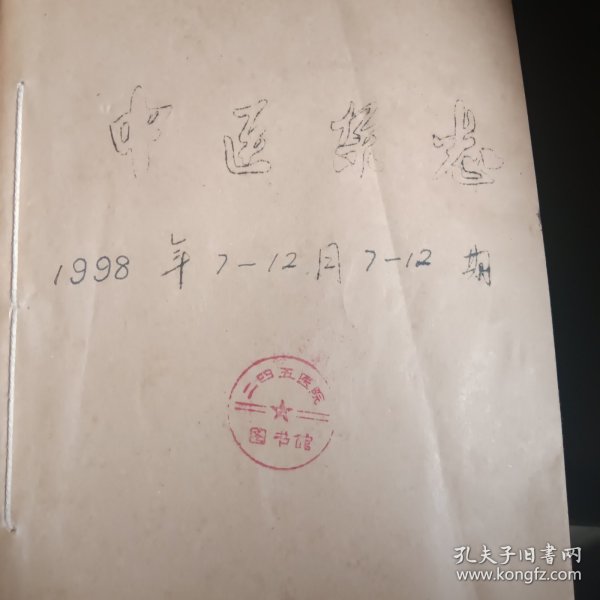 中医杂志
1998年7-12月7-12期
二四五医院
图书馆
孔夫子旧书网
www.kongfz.com